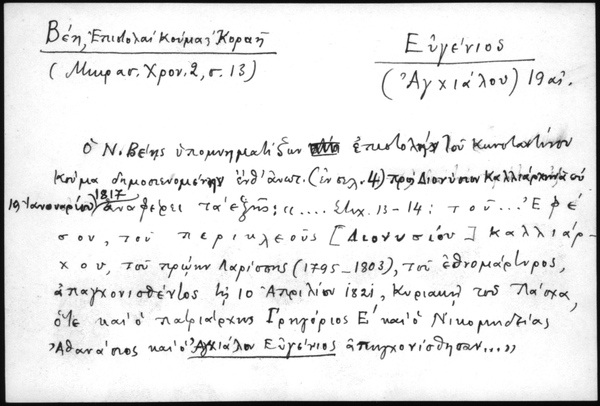 Βέη, Ἐπιστολαὶ Κούμα, Κοραῆ
(Μικρασ. Χρον. 2, σ. 13)
Εὐγένιος
(Ἀγχιάλου) 19 αἰ.
Ὁ Ν. Βέης ὑπομνηματίζων ἐπιστολὴν τοῦ Κωνσταντίνου
Κούμα δημοσιευομένην ἐνθ' ἀνωτ. (ἐν σελ. 4) πρὸς Διονύσιον Καλλιάρχην ἀπὸ
19 Ἰανουαρίου 1817 ἀναφέρει τὰ ἑξῆς: «.... Στιχ. 13-14: τοῦ... Ἐφέ
σου, τοῦ περικλεοῦς [Διονυσίου] Καλλιάρ-
χου, τοῦ πρῴην Λαρίσσης (1795-1803), τοῦ ἐθνομάρτυρος,
ἀπαγχονισθέντος τῇ 10 Ἀπριλίου 1821, Κυριακῇ τοῦ Πάσχα,
ὅτε καὶ ὁ πατριάρχης Γρηγόριος Ε' καὶ ὁ Νικομηδείας
Ἀθανάσιος καὶ ὁ Ἀγχιάλου Εὐγένιος ἀπηγχονίσθησαν...»